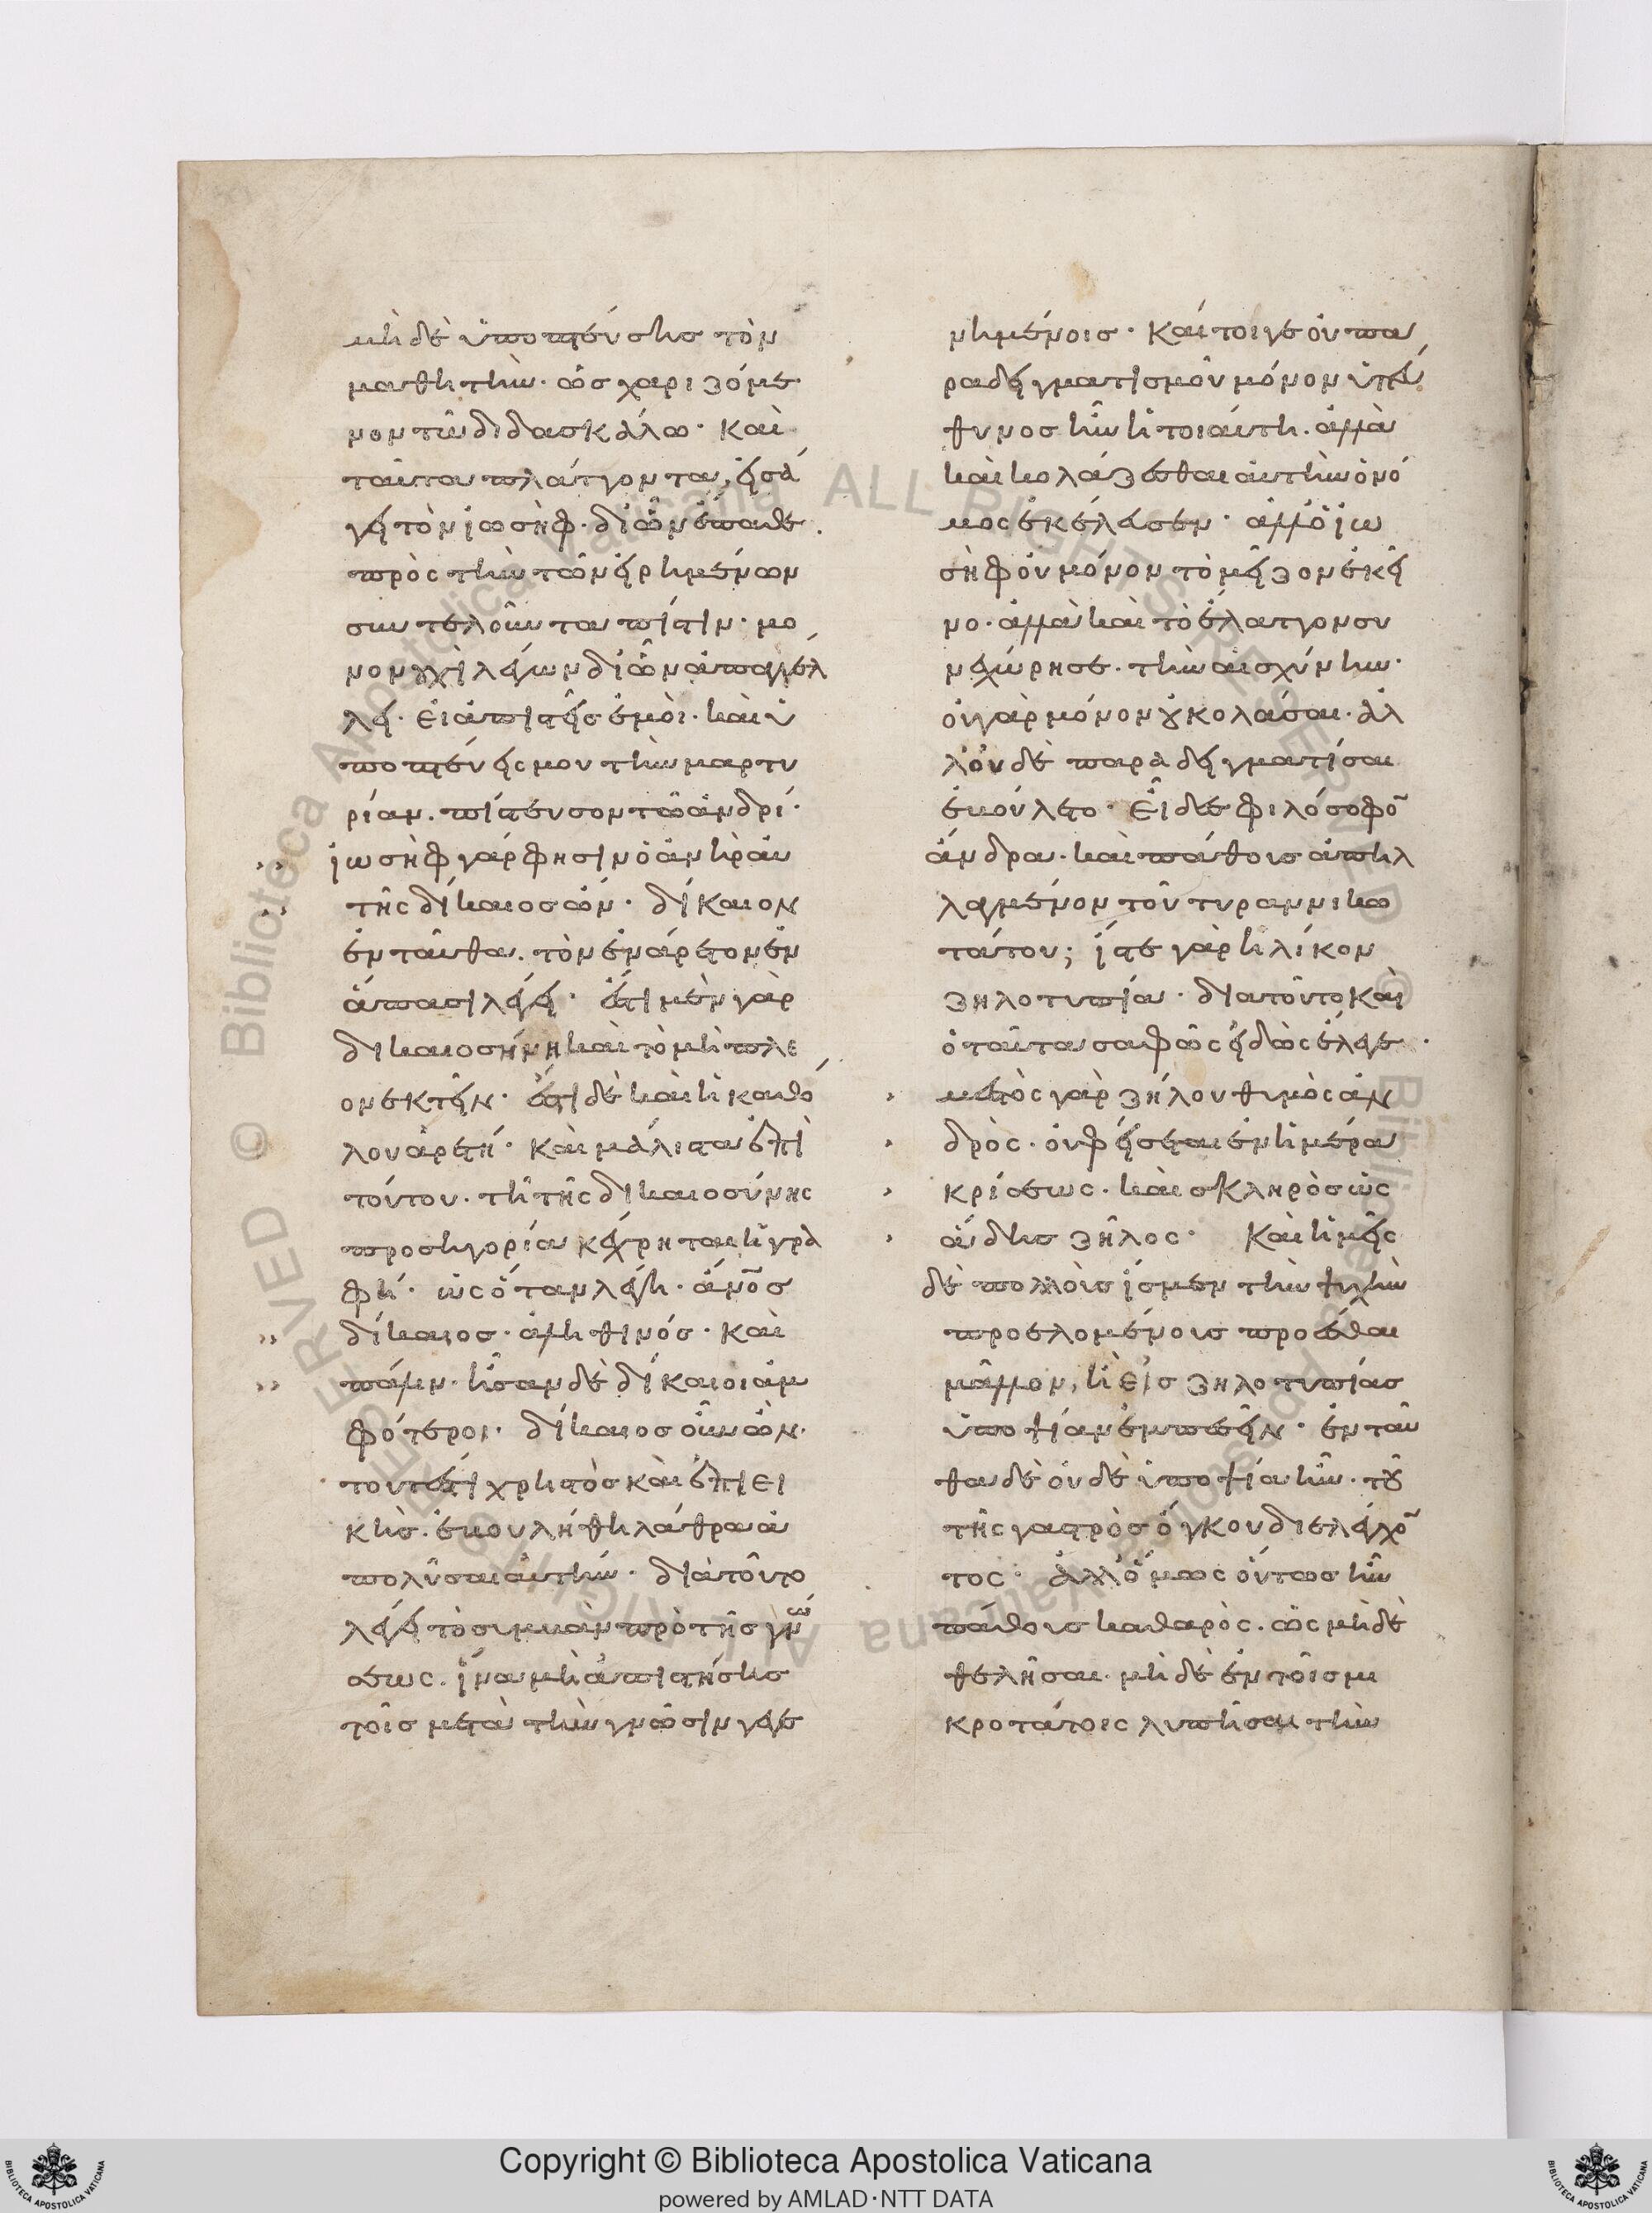 μὴ δὲ ὑποπτεύσης τὸν
μαθητὴν· ὡς χαριζόμε
νον τῶ διδασκάλω· καὶ
ταῦτα πλάττοντα, εἰσά
γει τὸν ἰωσὴφ· δι ὧν ἔπαθε
πρὸς τὴν τῶν εἰρημένων
συντελοῦντα πίστιν· μο
νονουχὶ λέγων δι ὧν ἀπαγγέλ
λει· εἰ ἀπιστεῖς ἐμοὶ· καὶ ὑ
ποπτεύεις μου τὴν μαρτυ
ρίαν. πίστευσον τῶ ἀνδρί·
ἰωσὴφ γάρ φησιν ὁ ἀνὴρ αὐ
τῆς δίκαιος ὤν· δίκαιον
ἐνταῦθα. τὸν ἐνάρετον ἐν
ἅπασι λέγει· ἔστι μὲν γὰρ
δικαιοσύνη καὶ τὸ μὴ πλε
ονεκτεῖν· ἔστι δὲ καὶ ἡ καθό
λου ἀρετή· καὶ μάλιστα ἐπὶ
τούτου. τῆ τῆς δικαιοσύνης
προσηγορία κέχρηται ἡ γρα
φή· ὡς ὅταν λέγη· ἄνος
δίκαιος· ἀληθινός· καὶ
πάλιν· ἦσαν δὲ δίκαιοι ἀμ
φότεροι· δίκαιος οὖν ὢν·
τουτέστι χρηστὸς καὶ ἐπιει
κὴς· ἐβουλήθη λάθρα ἀ
πολῦσαι αὐτήν· διὰ τοῦτο
λέγει τὸ συμβὰν πρὸ τῆς γνώ
σεως. ἵνα μὴ ἀπιστήσης
τοῖς μετὰ τὴν γνῶσιν γεγε
νημένοις· καίτοιγε οὐ πα
ραδειγματισμοῦ μόνον ὑπεύ
θυνος ἦν ἡ τοιαύτη. ἀλλὰ
καὶ κολάζεσθαι αὐτὴν ὁ νό
μος ἐκέλευσεν· ἀλλ ὁ ἰω
σὴφ οὐ μόνον τὸ μεῖζον ἐκεῖ
νο· ἀλλὰ καὶ τὸ ἔλαττον συ
νεχώρησε· τὴν αἰσχύνην·
οὐ γὰρ μόνον οὐ κολάσαι· ἀλ
λ οὐ δὲ παραδειγματίσαι
ἐβούλετο· εἶδες φιλόσοφον
ἄνδρα· καὶ πάθους ἀπηλ
λαγμένον τοῦ τυραννικω
τάτου; ἴστε γὰρ ἡλίκον
ζηλοτυπία· διατοῦτο καὶ
ὁ ταῦτα σαφῶς εἰδὼς ἔλεγε·
μεστὸς γὰρ ζήλου θυμὸς ἀν
δρὸς· οὐ φείσεται ἐν ἡμέρα
κρίσεως· καὶ σκληρὸς ὡς
ἅδης ζῆλος· καὶ ἡμεῖς
δὲ πολλοὺς ἴσμεν τὴν ψυχὴν
προελομένους προέσθαι
μᾶλλον, ἢ εἰς ζηλοτυπίας
ὑποψίαν ἐμπεσεῖν· ἐνταῦ
θα δὲ οὐδὲ ὑποψία ἦν· τοῦ
τῆς γαστρὸς ὄγκου διελέγχον
τος· ἀλλ ὅμως οὕτως ἦν
πάθους καθαρὸς· ὡς μὴ δὲ
θελῆσαι· μὴ δὲ ἐν τοῖς μι
κροτάτοις λυπῆσαι τὴν
Copyright © Biblioteca Apostolica Vaticana
powered by AMLAD·NTT DATA